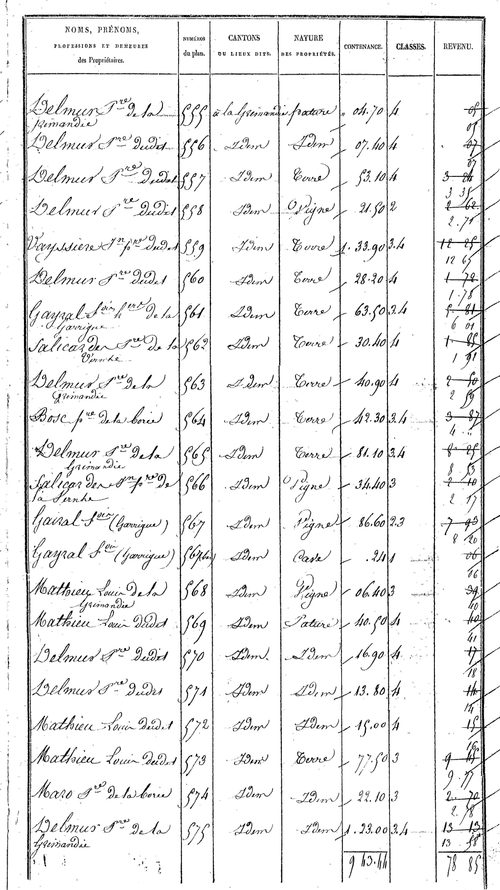 NOMS, PRÉNOMS, PROFESSIONS ET DEMEURES des Propriétaires. NUMÉROS du plan. CANTONS OU LIEUX DITS. NATURE DES PROPRIÉTÉS. CONTENANCE. CLASSES. REVENU.
Delmur Pre de la Grimandie 555 à la Grimandie pature 04.70 4 05
05
Delmur Pre dudit 556 Idem Idem 07.40 4 07
07
Delmur Pre dudit 557 Idem Terre 53.10 4 3
3 35
Delmur Pre dudit 558 Idem Vigne 21.50 2 2 62
2.70
Vayssiere Jn pre dudit 559 Idem Terre 1.33.90 3.4 12 25
12 65
Delmur Pre dudit 560 Idem Terre 28.20 4 1 72
1.78
Gayral de la Garrigue 561 Idem Terre 63.50 3.4 5 81
6 01
Salicardes de la 562 Idem Terre 30.40 4 1 85
1 91
Delmur Pre de la Grimandie 563 Idem Terre 40.90 4 2 50
2 59
Bosc pre de la borie 564 Idem Terre 42.30 3.4 3 87
4 ..
Delmur Pre de la Grimandie 565 Idem Terre 81.10 3.4 8 25
8 53
Salicardes Jn pre de la 566 Idem Vigne 34.40 3 2 10
2 17
Gairal (Garrigue) 567 Idem Vigne 86.60 2.3 7 93
8 20
Gayral (Garrigue) 567bis Idem Cave .24 1 06
06
Mathieu Louis de la Grimandie 568 Idem Vigne 06.40 3 39
40
Mathieu Louis dudit 569 Idem Pature 40.50 4 40
41
Delmur Pre dudit 570 Idem Idem 16.90 4 17
18
Delmur Pre dudit 571 Idem Idem 13.80 4 14
14
Mathieu Louis dudit 572 Idem Idem 15.00 4 15
15
Mathieu Louis dudit 573 Idem Terre 77.50 3 9
9.77
Maro Pre de la borie 574 Idem Idem 22.10 3 2 70
2.78
Delmur Pre de la Grimandie 575 Idem Idem 1.23.00 3.4 13 13
13 58
9 43.44 78 85